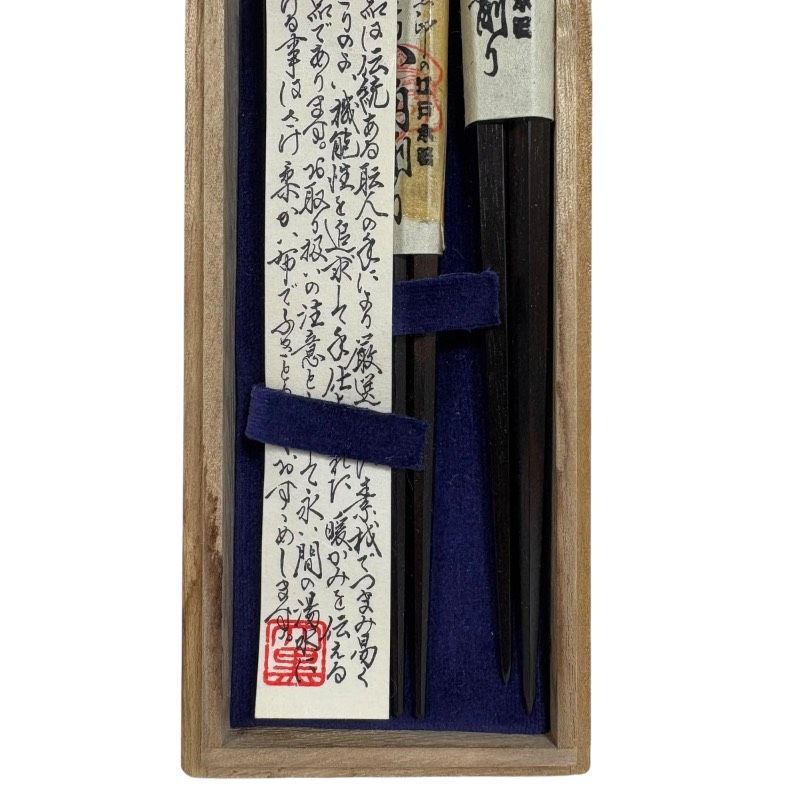 削り
の江戸木
角削り
品は伝統ある耺人の手により厳選
素材でつまみ易く
りのよい機能性を追求して手仕
れた 暖かみを伝える
品であります。お取り扱いの注意と
して永い間の湯水に
ける事はさけ 柔かい布でふきと
おすゝめします。